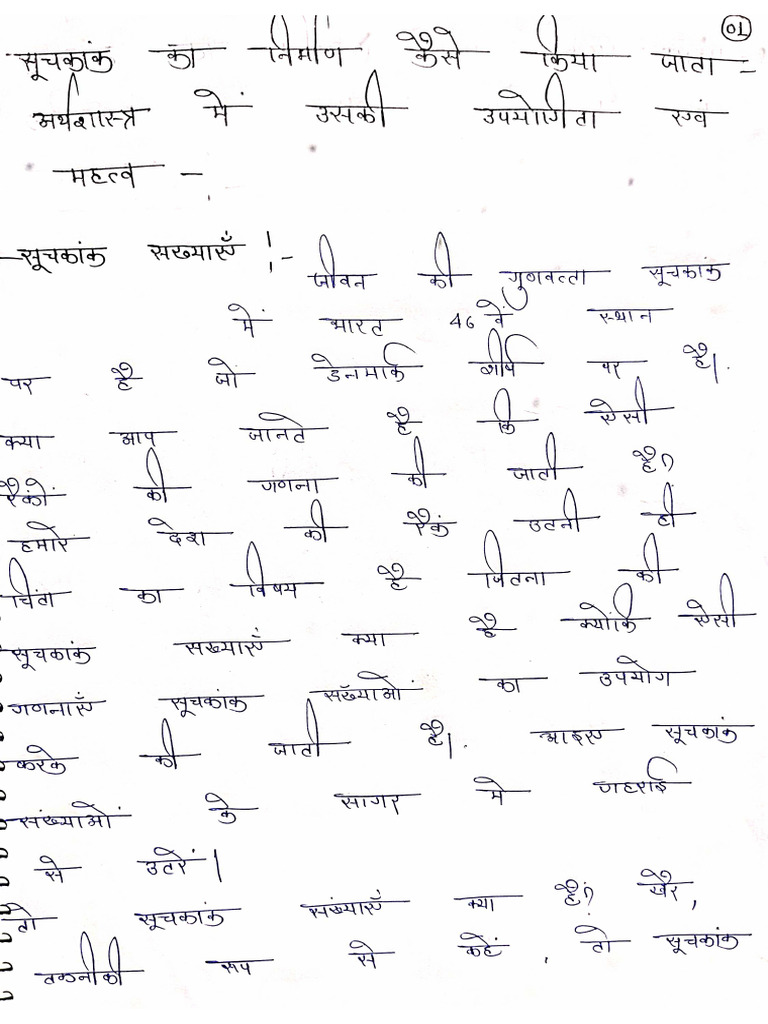 01
सूचकांक का निर्माण कैसे किया जाता -
अर्थशास्त्र में उसकी उपयोगिता एवं
महत्व -
सूचकांक सख्याएँ :- जीवन की गुणवत्ता सूचकांक
में भारत 46 वें स्थान
पर है जो डेनमार्क शीर्ष पर है।
क्या आप जानते है कि ऐसी
रैंकों की गणना की जाती है?
हमारे देश की रैंक उतनी ही
चिंता का विषय है जितना की
सूचकांक सख्याएँ क्या है क्योंकि ऐसी
गणनाएँ सूचकांक सँख्याओं का उपयोग
करके की जाती है। आइए सूचकांक
संख्याओं के सागर मे गहराई
से उतरें।
तो सूचकांक संख्याएँ क्या है? खैर,
तकनीकी रूप से कहें, तो सूचकांक